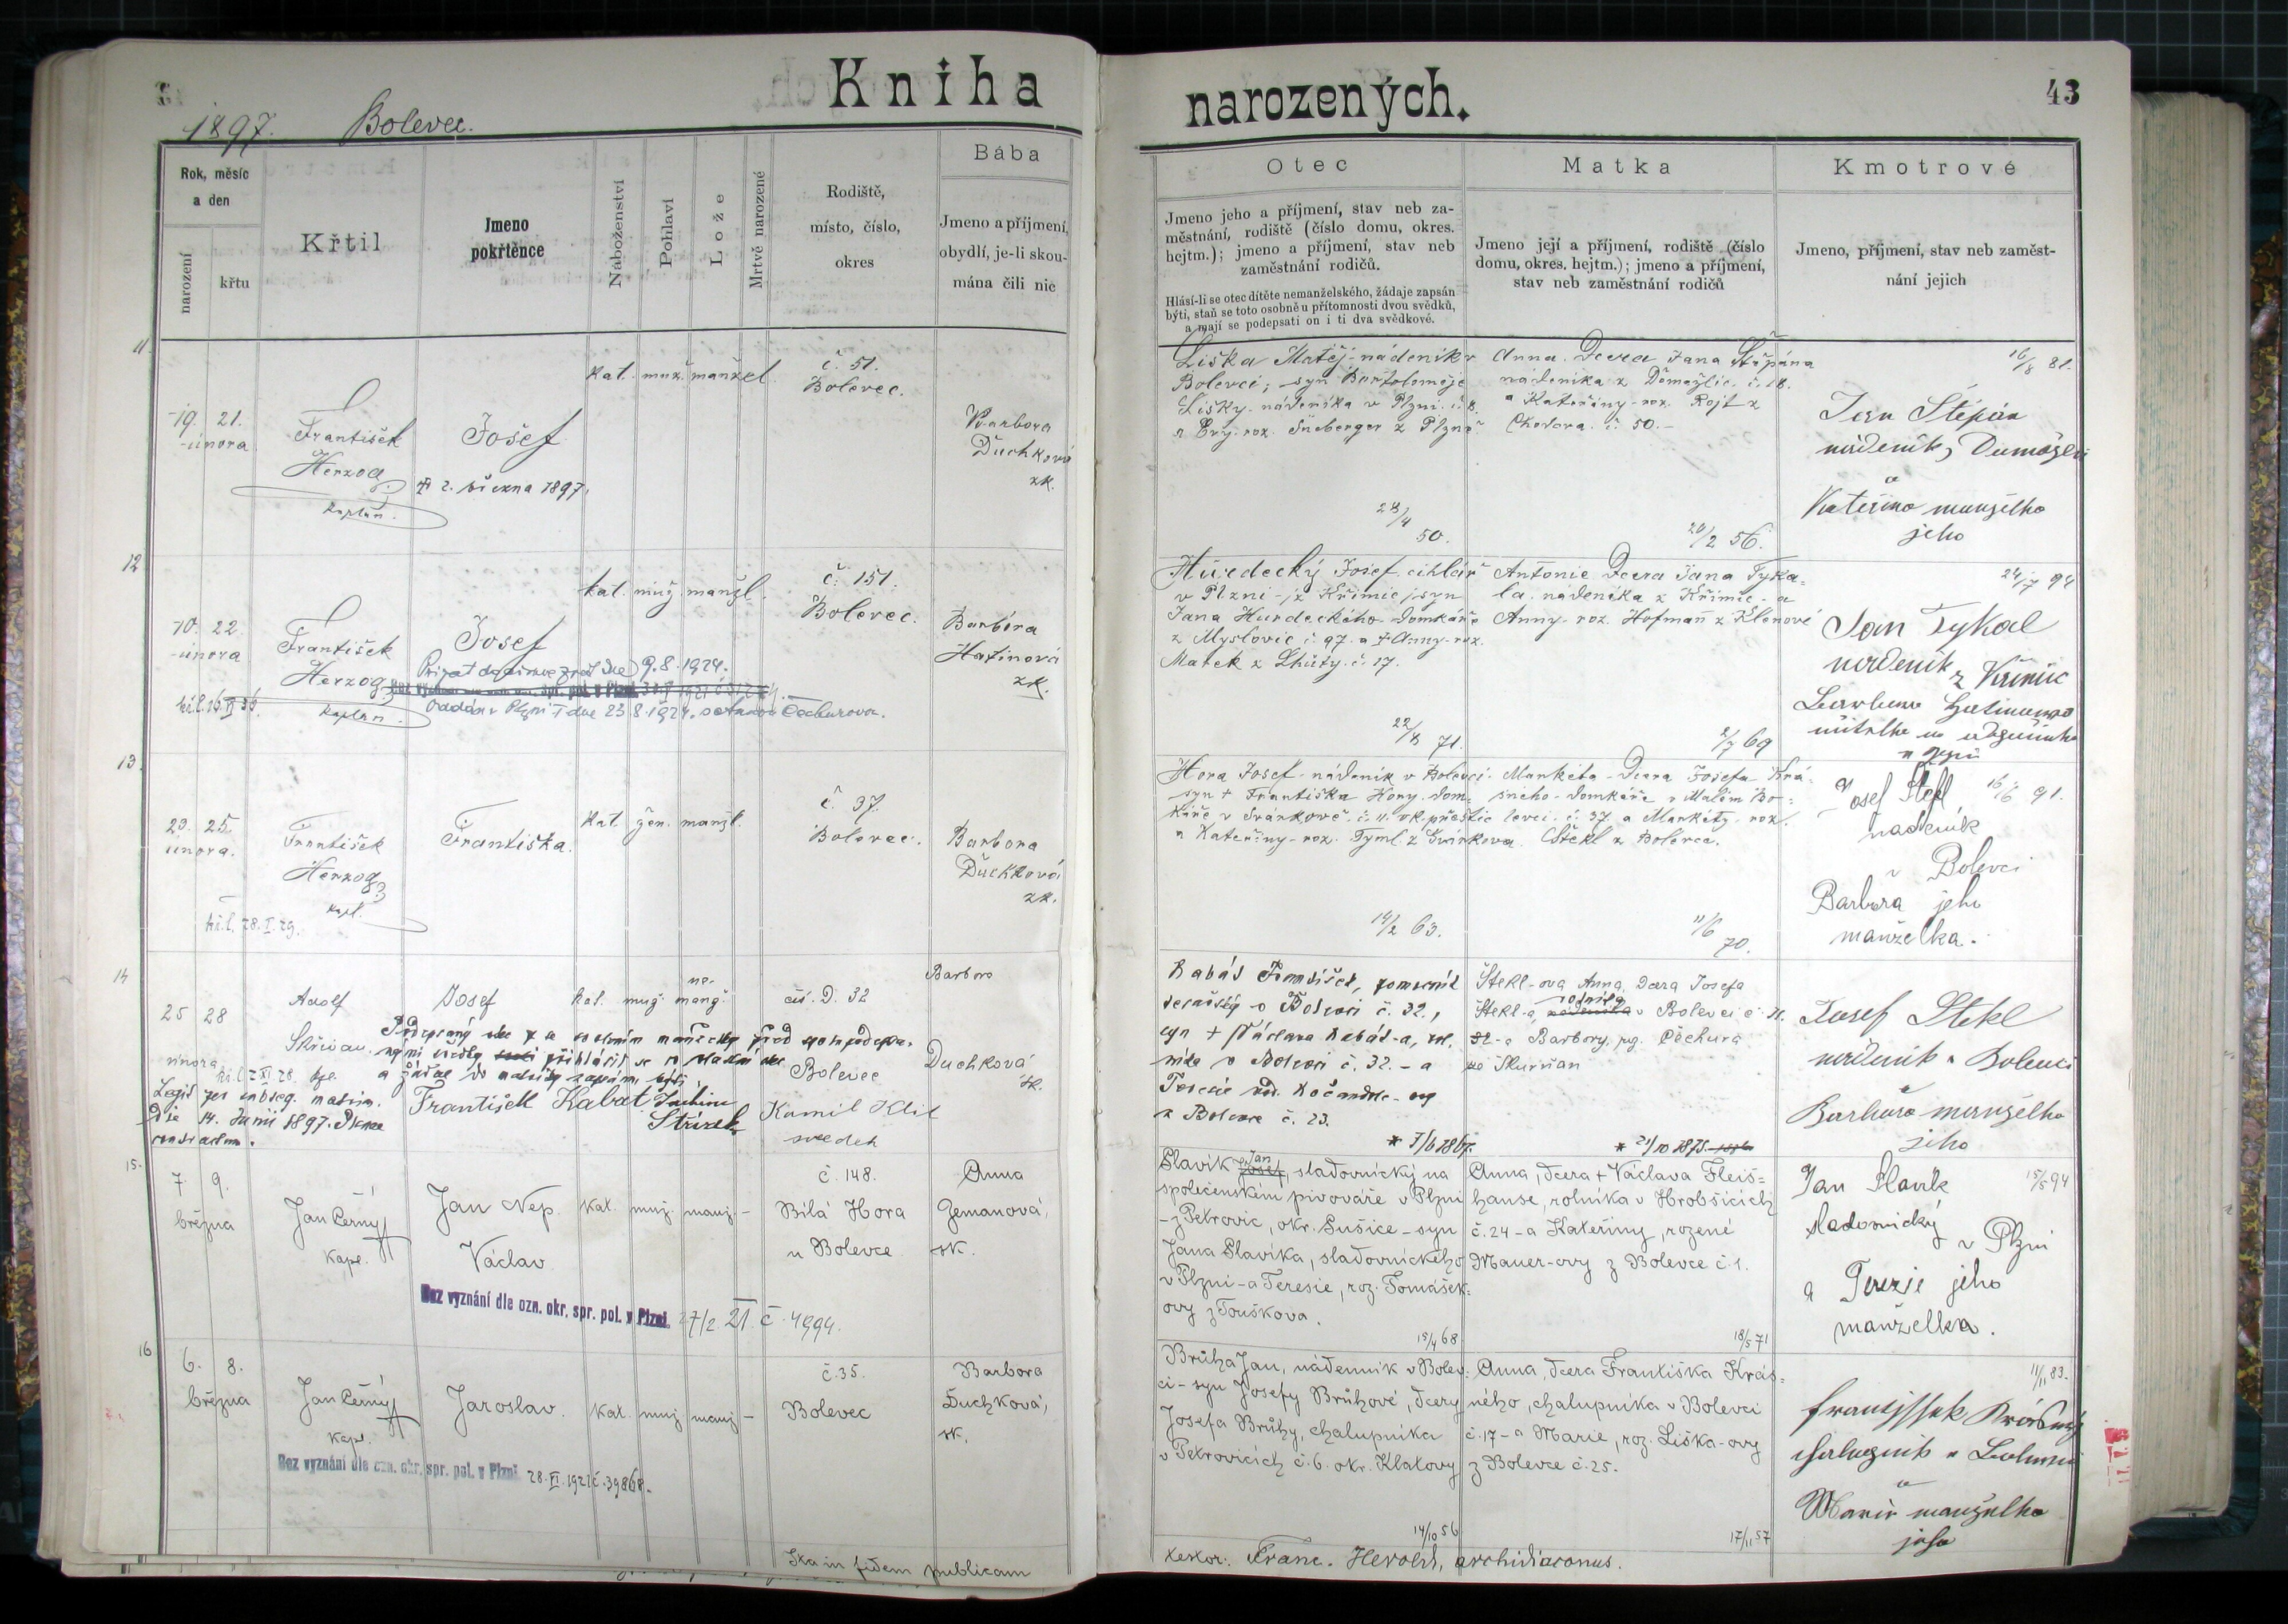 Kniha narozených.
43
1897. Bolevec.
Rok, měsíc a den
narození
křtu
Křtil
Jmeno pokřtěnce
Náboženství
Pohlaví
Lože
Mrtvě narozené
Rodiště,
místo, číslo,
okres
Bába
Jmeno a příjmení,
obydlí, je-li skou-
mána čili nic
Otec
Jmeno jeho a příjmení, stav neb za-
městnání, rodiště (číslo domu, okres.
hejtm.); jmeno a příjmení, stav neb
zaměstnání rodičů.
Hlásí-li se otec dítěte nemanželského, žádaje zapsán
býti, staň se toto osobně u přítomnosti dvou svědků,
a mají se podepsati on i ti dva svědkové.
Matka
Jmeno její a příjmení, rodiště (číslo
domu, okres. hejtm.); jmeno a příjmení,
stav neb zaměstnání rodičů
Kmotrové
Jmeno, příjmení, stav neb zaměst-
nání jejich
11.
19. 21.
února
František
Herzog
kaplan.
Josef
2. března 1897.
kat. muž. manžel.
č. 51.
Bolevec.
Barbora
Duchková
zk.
Liška Matěj - nádeník v
Bolevci; syn Bartoloměje
Lišky. nádeníka v Plzni. č. 8.
a Evy. roz. Šneberger z Plzně.
28/4
50.
Anna. Dcera Jana Štěpána
nádeníka z Domažlic. č. 18.
a Kateřiny. roz. Rojt z
Chodova. č. 50.-
20/2 56.
16/8 81.
Jan Štěpán
nádeník, Domažlic
a
Kateřina manželka
jeho
12
10. 22.
února
František
Herzog
kaplan.
Josef
9.8.1924.
v Plzni dne 23.8.1924.
kat. muž. manžl.
č. 151.
Bolevec.
Barbora
Hatinová
zk.
Hurdecký Josef cihlář
v Plzni - z Křimic; syn
Jana Hurdeckého domkáře
z Myslovic č. 97. a Anny. roz.
Matek z Lhůty. č. 17.
22/8 71.
Antonie Dcera Jana Tyka-
la. nádeníka z Křimic - a
Anny. roz. Hofmann z Klenové
2/7 69
24/7 94
Jan Tykal
nádeník z Křimic
13.
23. 25.
února.
František
Herzog
kapl.
kř. l. 28. I. 29.
Františka.
kat. žen. manžl.
č. 37.
Bolevec.
Barbora
Duchková
zk.
Hora Josef - nádeník v Bolevci.
syn + Františka Hory. dom-
káře v č. 11. ok. přeštic
a Kateřiny. roz. Tyml. z
14/2 63.
Markéta - Dcera Josefa Krá-
sného - domkáře v Malém Bo-
levci. č. 37. a Markéty. roz.
Štekl z Bolevce.
11/6
70.
Josef Štekl 16/6 91.
nadeník
v Bolevci
Barbora jeho
manželka.
14
25 28
února
Adolf
Skřivan.
kpl.
Josef
kat. muž. ne-
manž.
čís. D. 32
Bolevec
Barbora
Duchková
zk.
František Kabát
Kamil Klil
svedek
Legit. per subseq. matrim.
die 14. Junii 1897.
Kabát František, pomocník
v Bolevci č. 32.,
syn + Václava Kabát-a, rol-
níka v Bolevci č. 32. - a
Terezie
z Bolevce č. 23.
* 7/6 1867.
Štekl-ova Anna, dcera Josefa
Štekl-a, rolníka v Bolevci č. 31.
a Barbory, roz. Čechura
ze Skurňan
* 21/10 1875.
Josef Štekl
nádeník v Bolevci
a
Barbora manželka
jeho
15.
7. 9.
března
Jan Černý
kapl.
Jan Nep.
Václav
Bez vyznání dle ozn. okr. spr. pol. v Plzni. 27/2 21. č. 4994.
kat. muž. manž. -
č. 148.
Bílá Hora
u Bolevce
Anna
Zemanová,
zk.
Slavík Jan, sladovnický na
společenském pivováře v Plzni
- z Petrovic, okr. Sušice - syn
Jana Slavíka, sladovnického
v Plzni - a Teresie, roz. Tomášek-
ovy z Touškova.
15/4 68
Anna, dcera + Václava Fleiš-
hanse, rolníka v Hrobšicích
č. 24 - a Kateřiny, rozené
Mauer-ovy z Bolevce č. 1.
18/5 71
Jan Slavík 15/5 94
sladovnický
v Plzni
a Terezie jeho
manželka.
16
6. 8.
března
Jan Černý
kapl.
Jaroslav.
Bez vyznání dle ozn. okr. spr. pol. v Plzni. 28. XI. 1921 č. 39868.
kat. muž. manž. -
č. 35.
Bolevec
Barbora
Duchková,
zk.
Brůha Jan, nádenník v Bolev-
ci - syn Josefy Brůhové, dcery
Josefa Brůhy, chalupníka
v Petrovicích č. 6. okr. Klatovy
14/10 56
Anna, dcera Františka Krás-
ného, chalupníka v Bolevci
č. 17 - a Marie, roz. Liška-ovy
z Bolevce č. 25.
17/11 57
11/11 83.
Frantissek Krásný
chalupník v Bolevci
a
Marie manželka
jeho
Ita in fidem publicam
testor: Franc. Herold, archidiaconus.